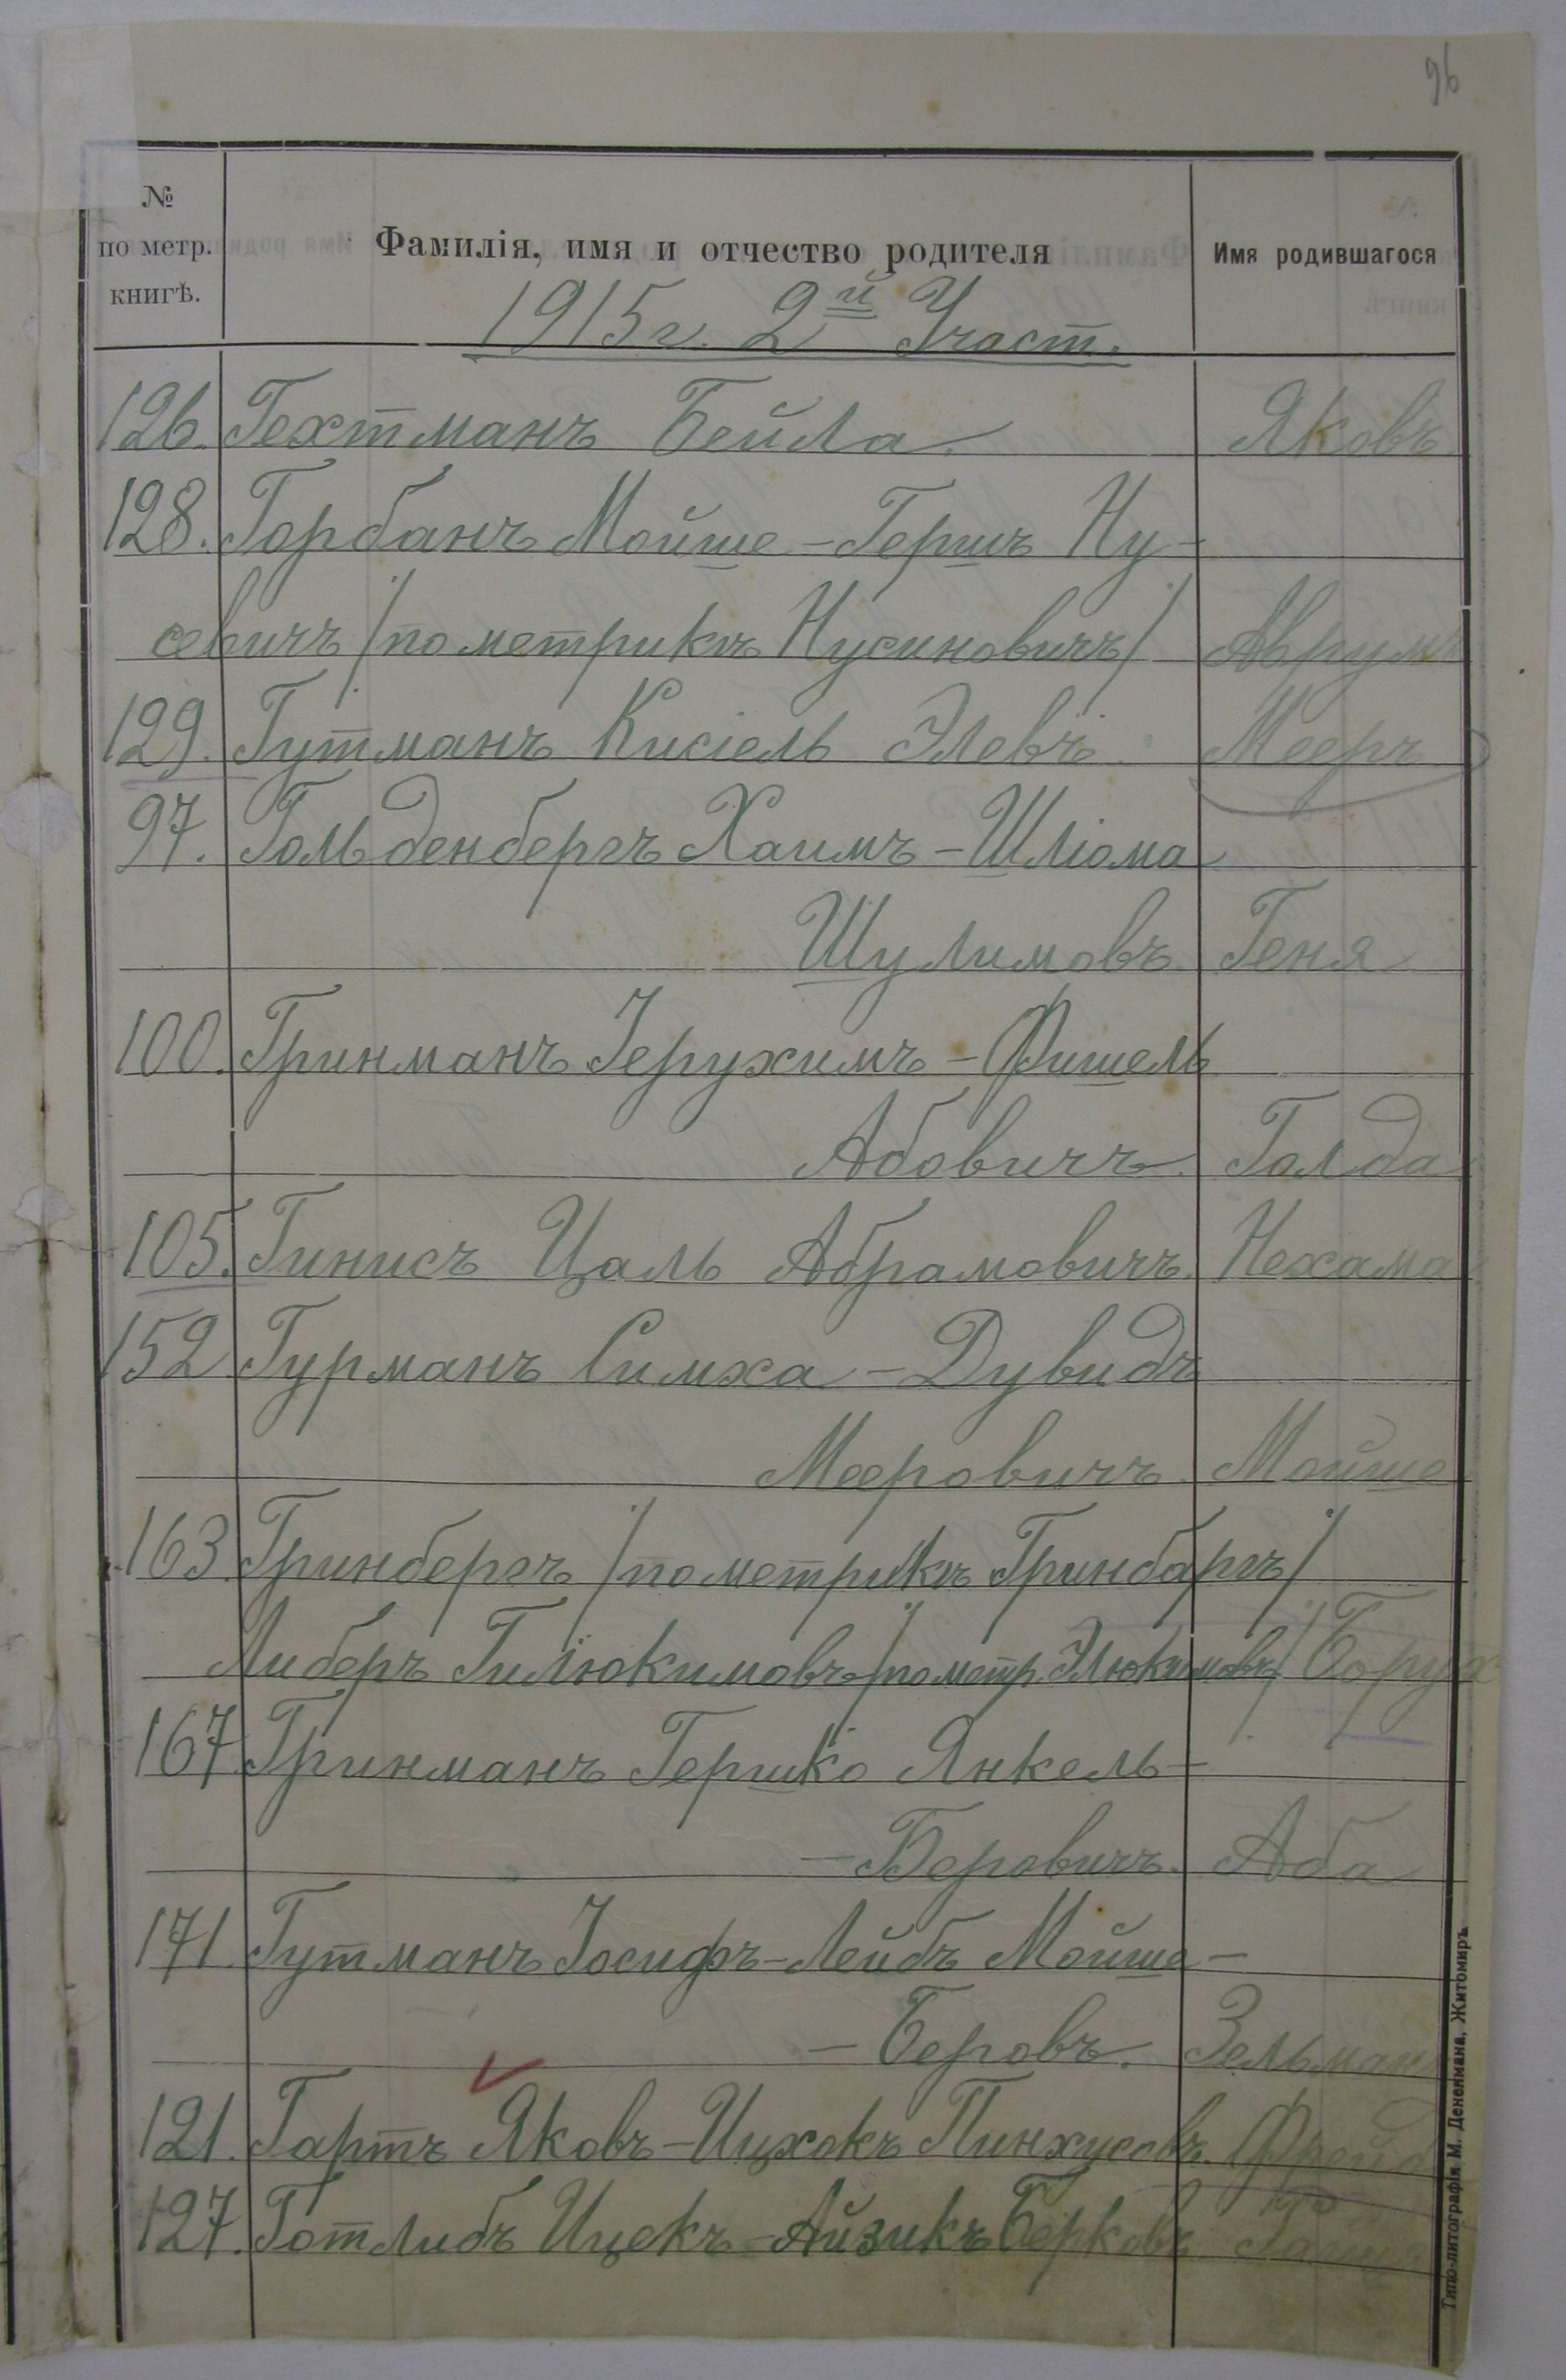 96
№ по метр. книгѣ. Фамилія, имя и отчество родителя Имя родившагося
1915 г. 2й Участ.
126. Гехтманъ Бейла Яковъ
128. Горбанъ Мойше-Гершъ Ну-
севичъ /по метрикѣ Нусиновичъ/ Аврумъ
129. Гутманъ Кисіель Элевъ Мееръ
97. Гольденбергъ Хаимъ-Шліома
Шулимовъ Геня
100. Гринманъ Іерухимъ-Фишель
Абовичъ. Голда
105. Гинисъ Цаль Абрамовичъ. Нехама
152 Гурманъ Симха-Дувидъ
Мееровичъ. Мойше
163. Гринбергъ /по метрикѣ Гринбаргъ/
Либеръ Гилюкимовъ /по метр. Элюкимовъ/ Борух
167. Гринманъ Гершко Янкель-
-Беровичъ. Аба
171. Гутманъ Іосифъ-Лейбъ Мойше-
-Беровъ. Зельман
121. Гартъ Яковъ-Ицхокъ Пинхусовъ.
127. Готлибъ Ицекъ-Айзикъ Берковъ
Типо-литографія М. Дененмана, Житомиръ